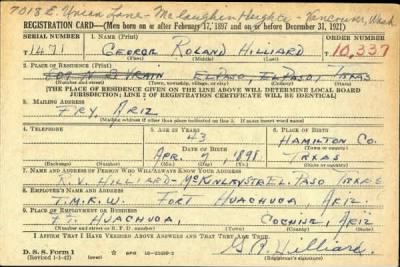 7018 E. Union Lane - McLaughlin Heights - Vancouver, Wash
REGISTRATION CARD—(Men born on or after February 17, 1897 and on or before December 31, 1921)
SERIAL NUMBER
1. NAME (Print)
ORDER NUMBER
T 1471
GEORGE ROLAND HILLIARD
10,337
(First) (Middle) (Last)
2. PLACE OF RESIDENCE (Print)
N ST VRAIN EL PASO, EL PASO, TEXAS
(Number and street) (Town, township, village, or city) (County) (State)
[THE PLACE OF RESIDENCE GIVEN ON THE LINE ABOVE WILL DETERMINE LOCAL BOARD
JURISDICTION; LINE 2 OF REGISTRATION CERTIFICATE WILL BE IDENTICAL]
3. MAILING ADDRESS
FRY, ARIZ
[Mailing address if other than place indicated on line 2. If same insert word same]
4. TELEPHONE
5. AGE IN YEARS
6. PLACE OF BIRTH
43
HAMILTON CO.
DATE OF BIRTH
(Town or county)
APR. 7 1898.
TEXAS
(Exchange) (Number)
(Mo.) (Day) (Yr.)
(State or country)
7. NAME AND ADDRESS OF PERSON WHO WILL ALWAYS KNOW YOUR ADDRESS
R. V. HILLIARD - MCKINLEY ST EL PASO TEXAS
8. EMPLOYER'S NAME AND ADDRESS
FORT HUACHUCA, ARIZ.
9. PLACE OF EMPLOYMENT OR BUSINESS
FT. HUACHUCA, COCHISE, ARIZ
(Number and street or R. F. D. number) (Town) (County) (State)
I AFFIRM THAT I HAVE VERIFIED ABOVE ANSWERS AND THAT THEY ARE TRUE.
D. S. S. Form 1
(Revised 1-1-42) (over)
G. R. Hilliard
(Registrant's signature)